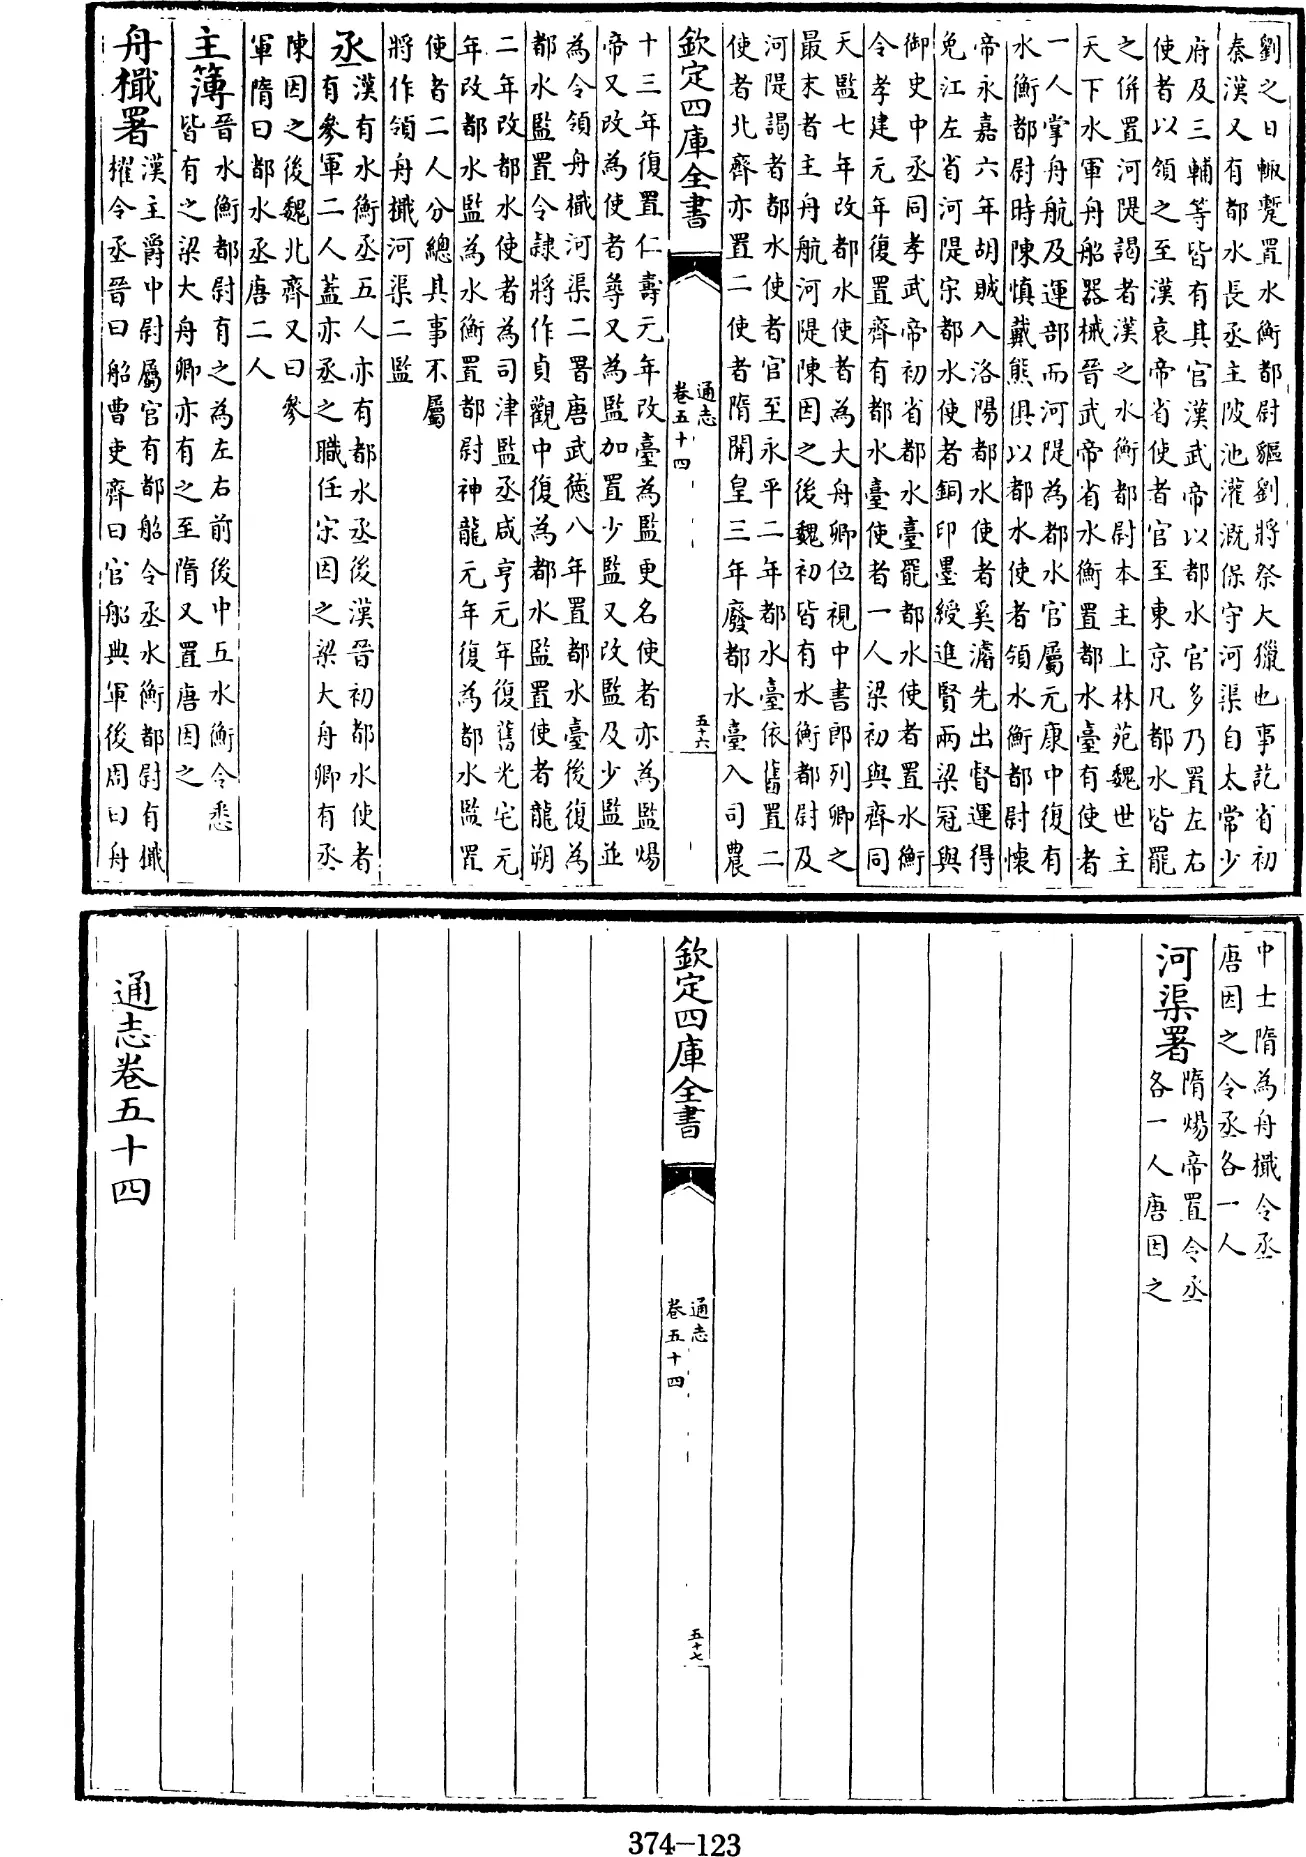 劉之日輙蹔置水衡都尉貙劉將祭大獵也事訖省初
秦漢又有都水長丞主陂池灌溉保守河渠自太常少
府及三輔等皆有其官漢武帝以都水官多乃置左右
使者以領之至漢哀帝省使者官至東京凡都水皆罷
之併置河隄謁者漢之水衡都尉本主上林苑魏世主
天下水軍舟船器械晉武帝省水衡置都水臺有使者
一人掌舟航及運部而河隄為都水官屬元康中復有
水衡都尉時陳慎戴熊俱以都水使者領水衡都尉懷
帝永嘉六年胡賊入洛陽都水使者奚濬先出督運得
免江左省河隄宋都水使者銅印墨綬進賢兩梁冠與
御史中丞同孝武帝初省都水臺罷都水使者置水衡
令孝建元年復置齊有都水臺使者一人梁初與齊同
天監七年改都水使者為大舟卿位視中書郎列卿之
最末者主舟航河隄陳因之後魏初皆有水衡都尉及
河隄謁者都水使者官至永平二年都水臺依舊置二
使者北齊亦置二使者隋開皇三年廢都水臺入司農
欽定四庫全書
通志
卷五十四
五十六
十三年復置仁壽元年改臺為監更名使者亦為監煬
帝又改為使者尋又為監加置少監又改監及少監並
為令領舟檝河渠二署唐武德八年置都水臺後復為
都水監置令隷將作貞觀中復為都水監置使者龍朔
二年改都水使者為司津監丞咸亨元年復舊光宅元
年改都水監為水衡置都尉神龍元年復為都水監置
使者二人分總其事不屬
將作領舟檝河渠二監
丞
漢有水衡丞五人亦有都水丞後漢晉初都水使者
有參軍二人蓋亦丞之職任宋因之梁大舟卿有丞
陳因之後魏北齊又曰參
軍隋曰都水丞唐二人
主簿
晉水衡都尉有之為左右前後中五水衡令悉
皆有之梁大舟卿亦有之至隋又置唐因之
舟檝署
漢主爵中尉屬官有都船令丞水衡都尉有檝
櫂令丞晉曰船曹吏齊曰官船典軍後周曰舟
中士隋為舟檝令丞
唐因之令丞各一人
河渠署
隋煬帝置令丞
各一人唐因之
欽定四庫全書
通志
卷五十四
五十七
通志卷五十四
374-123